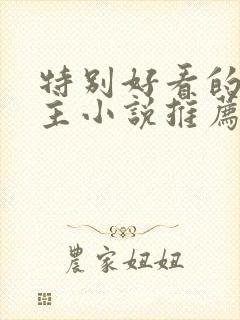 特别好看的
主小説推薦
農家妞妞